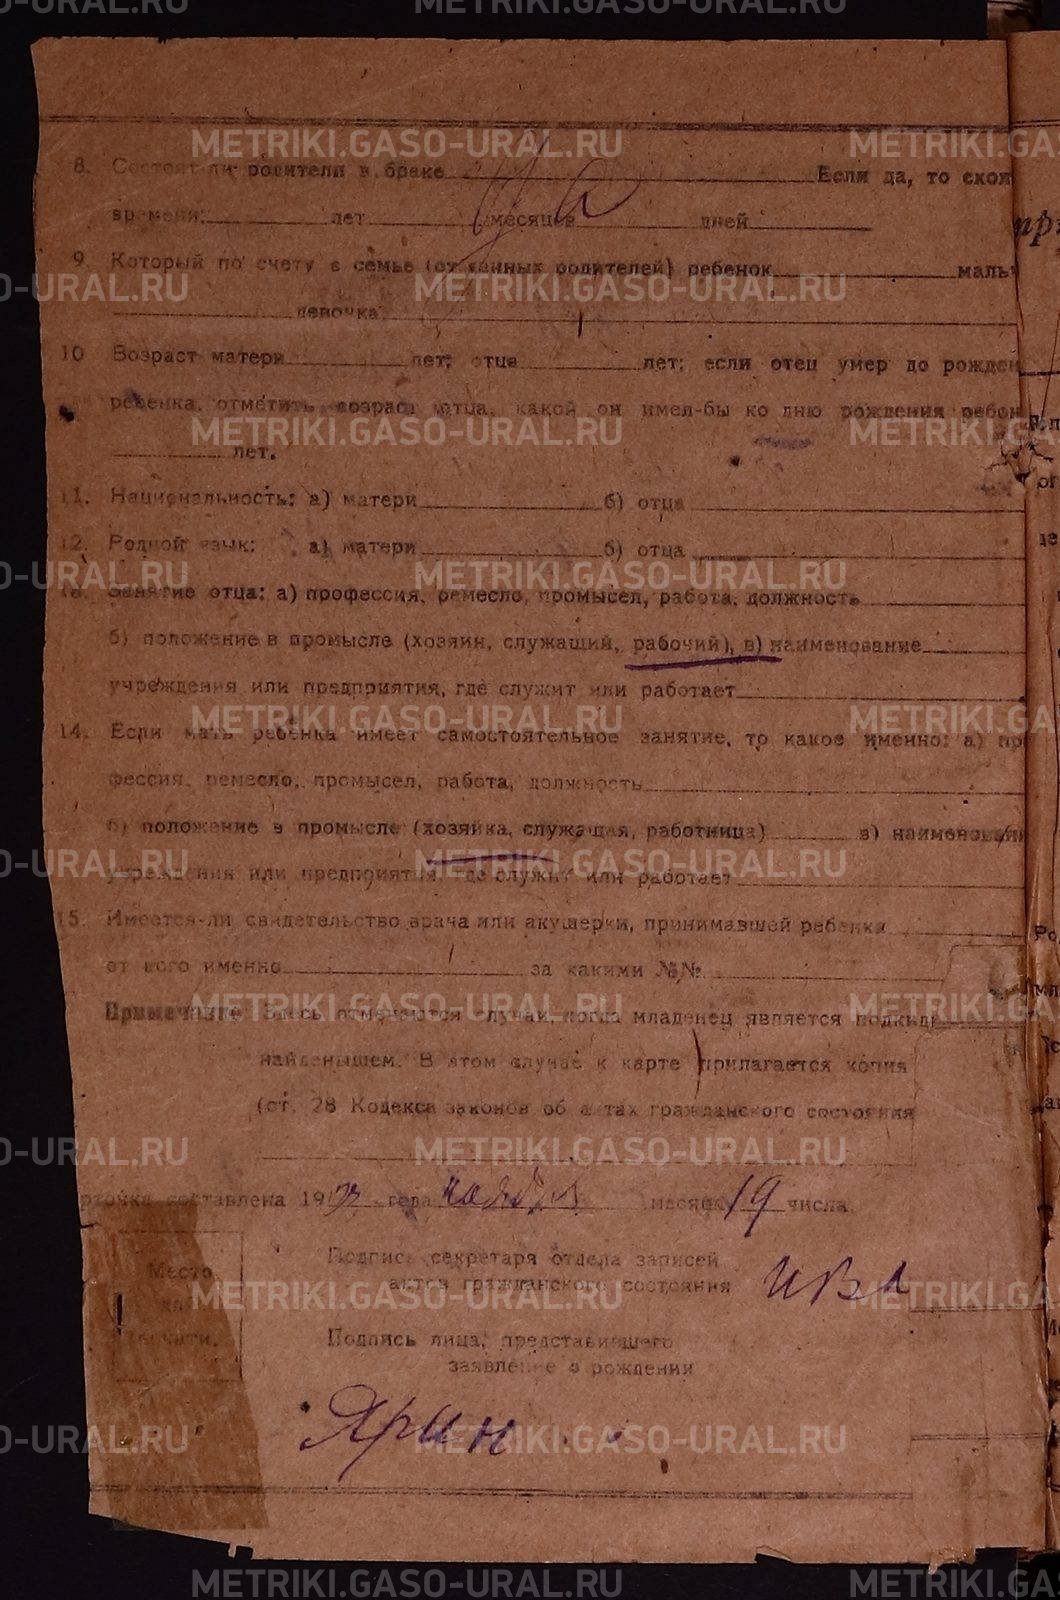 METRIKI.GASO-URAL.RU
8. Состоят-ли родители в браке Да Если да, то скол
времени: лет месяцев дней
9. Который по счету в семье (от данных родителей) ребенок маль
девочка
10 Возраст матери лет; отца лет; если отец умер до рожден
ребенка, отметить возраст отца, какой он имел-бы ко дню рождения ребен
лет.
11. Национальность: а) матери б) отца
12. Родной язык: а) матери б) отца
13. Занятие отца: а) профессия, ремесло, промысел, работа, должность
б) положение в промысле (хозяин, служащий, рабочий), в) наименование
учреждения или предприятия, где служит или работает
14. Если мать ребенка имеет самостоятельное занятие, то какое именно: а) про
фессия, ремесло, промысел, работа, должность
б) положение в промысле (хозяйка, служащая, работница) в) наименовани
учреждения или предприятия, где служит или работает
15. Имеется-ли свидетельство врача или акушерки, принимавшей ребенка
от кого именно за какими №№
Примечание Здесь отмечаются случаи, когда младенец является подкид
найденышем. В этом случае к карте прилагается копия
(ст. 28 Кодекса законов об актах гражданского состояния
рточка составлена 19 года ноября месяца 19 числа.
Подпись секретаря отдела записей
актов гражданского состояния
Место
для
печати.
Подпись лица, представившего
заявление о рождении
Ярин